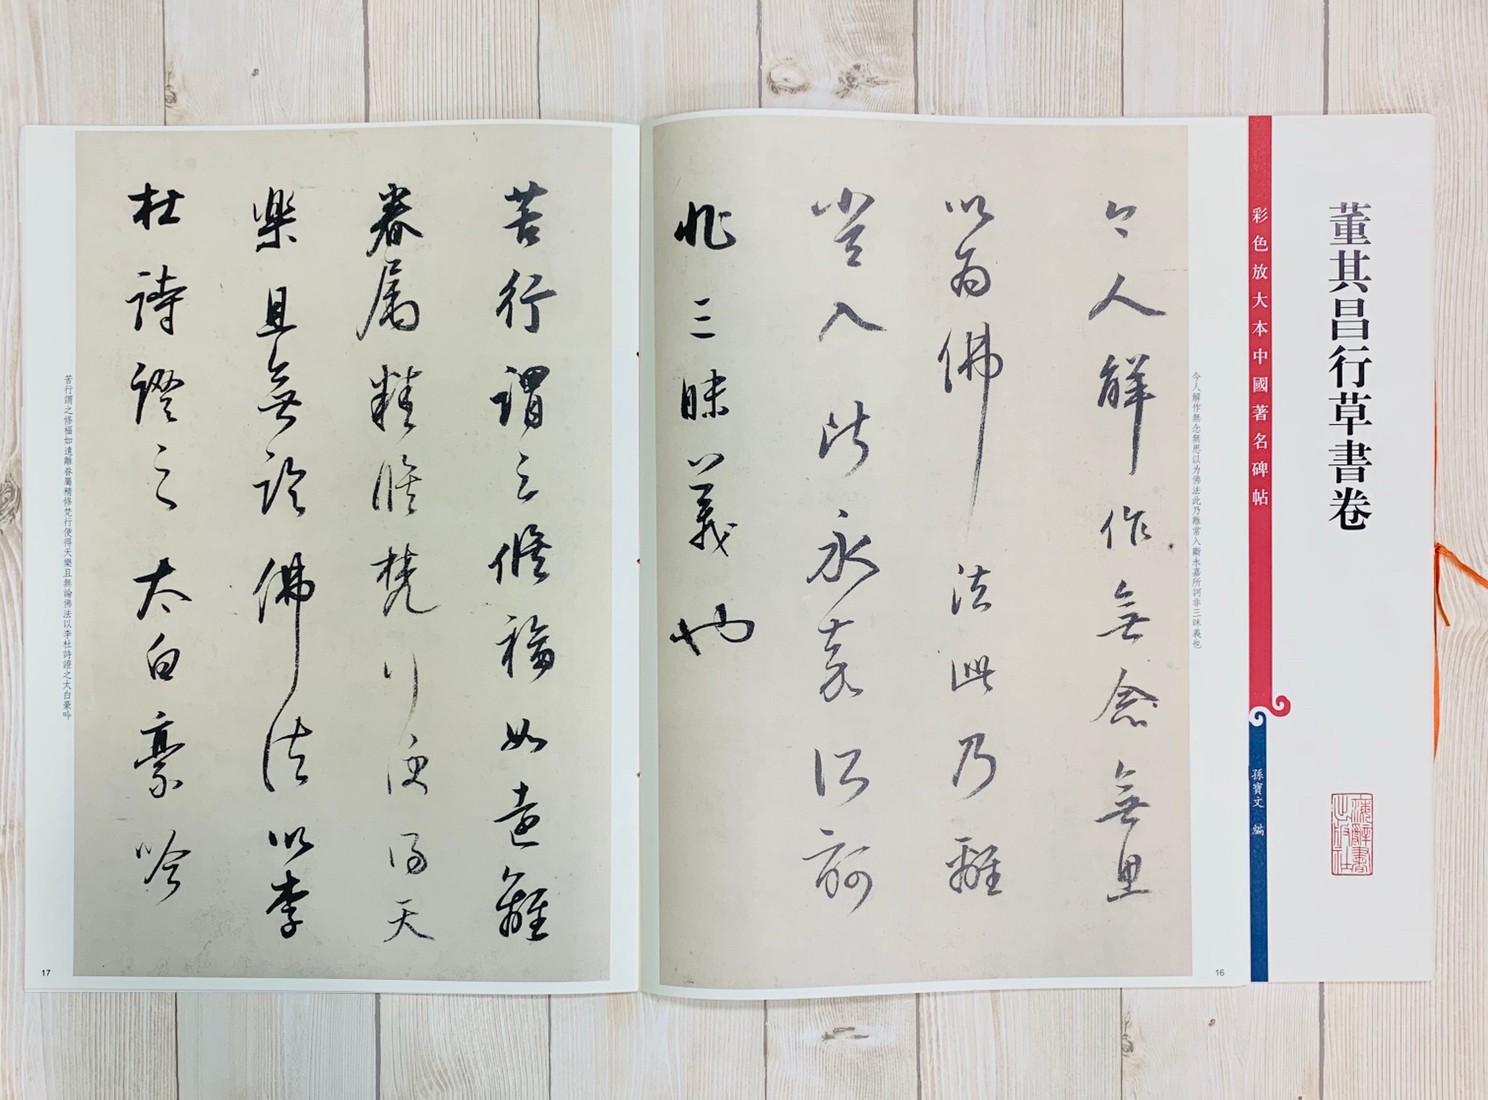 董其昌行草書卷
上海辭書
出版社
彩色放大本中國著名碑帖
孫寶文 編
今人解作無念無思以为佛法此乃離常入斷永嘉所訶非三昧義也
今人解作無念無思
以为佛法此乃離
常入断永嘉所訶
非三昧義也
16
苦行謂之修福如遠離
眷属精修梵行便得天
樂且無論佛法以李
杜詩證之太白豪吟
苦行謂之修福如遠離眷屬精修梵行便得天樂且無論佛法以李杜詩證之太白豪吟
17